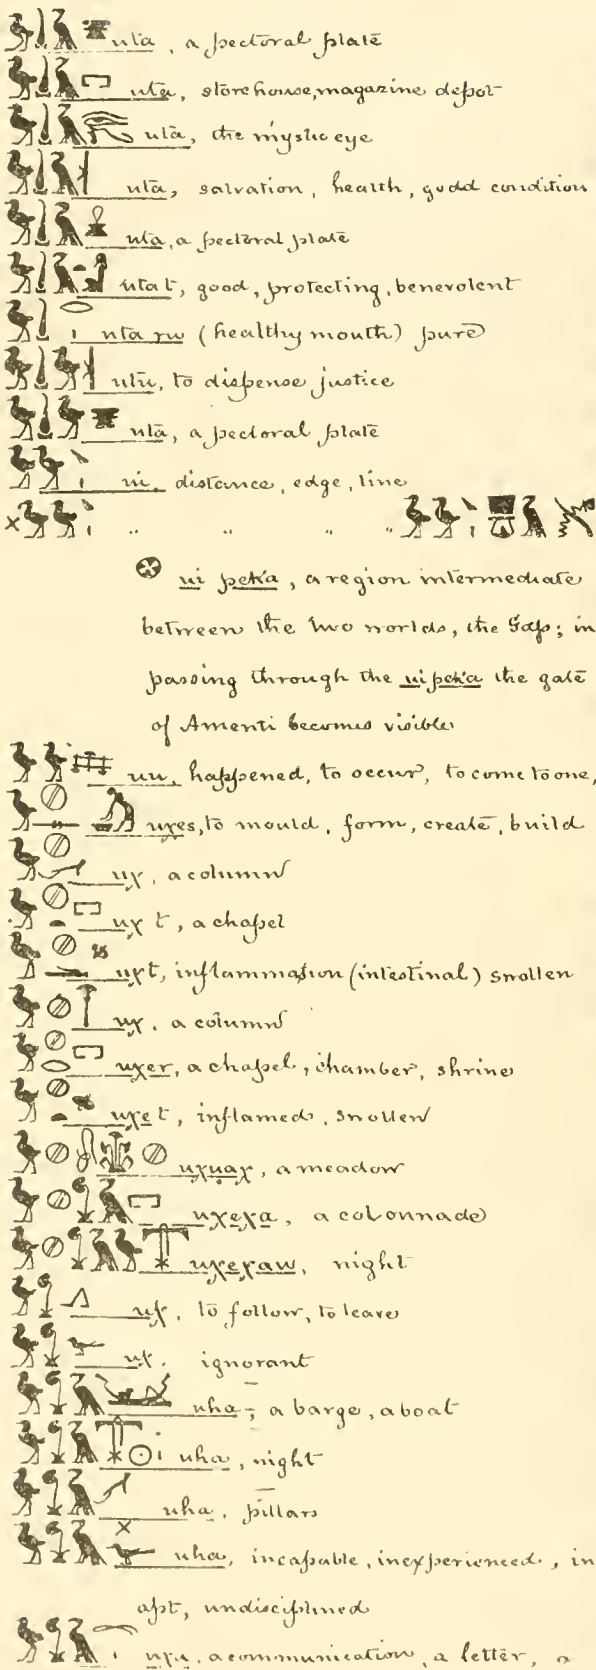 uta, a pectoral plate
uta, storehouse, magazine depot
uta, the mystic eye
uta, salvation, health, good condition
uta, a pectoral plate
uta t, good, protecting, benevolent
uta ru (healthy mouth) pure
utu, to dispense justice
uta, a pectoral plate
ui, distance, edge, line
" " " "
ui peka, a region intermediate
between the two worlds, the Gap; in
passing through the ui peka the gate
of Amenti becomes visible
uu, happened, to occur, to come to one,
uχes, to mould, form, create, build
uχ, a column
uχ t, a chapel
uχt, inflammation (intestinal) swollen
uχ, a column
uχer, a chapel, chamber, shrine
uχe t, inflamed, swollen
uχuaχ, a meadow
uχeχa, a colonnade
uχeχaw, night
uχ, to follow, to leave
uχ. ignorant
uha, a barge, a boat
uha, night
uha, pillars
uha, incapable, inexperienced, in
apt, undisciplined
uχu, a communication, a letter, a